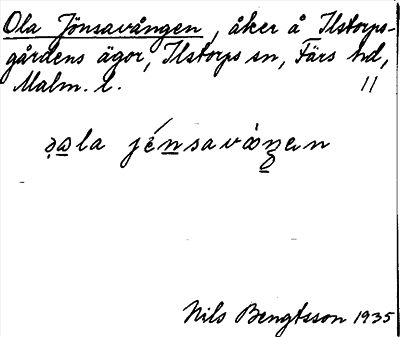 Ola Jönsavången, åker å Ilstorps-
gårdens ägor, Ilstorps sn, Färs hd,
Malm. l. 11
Nils Bengtsson 1935